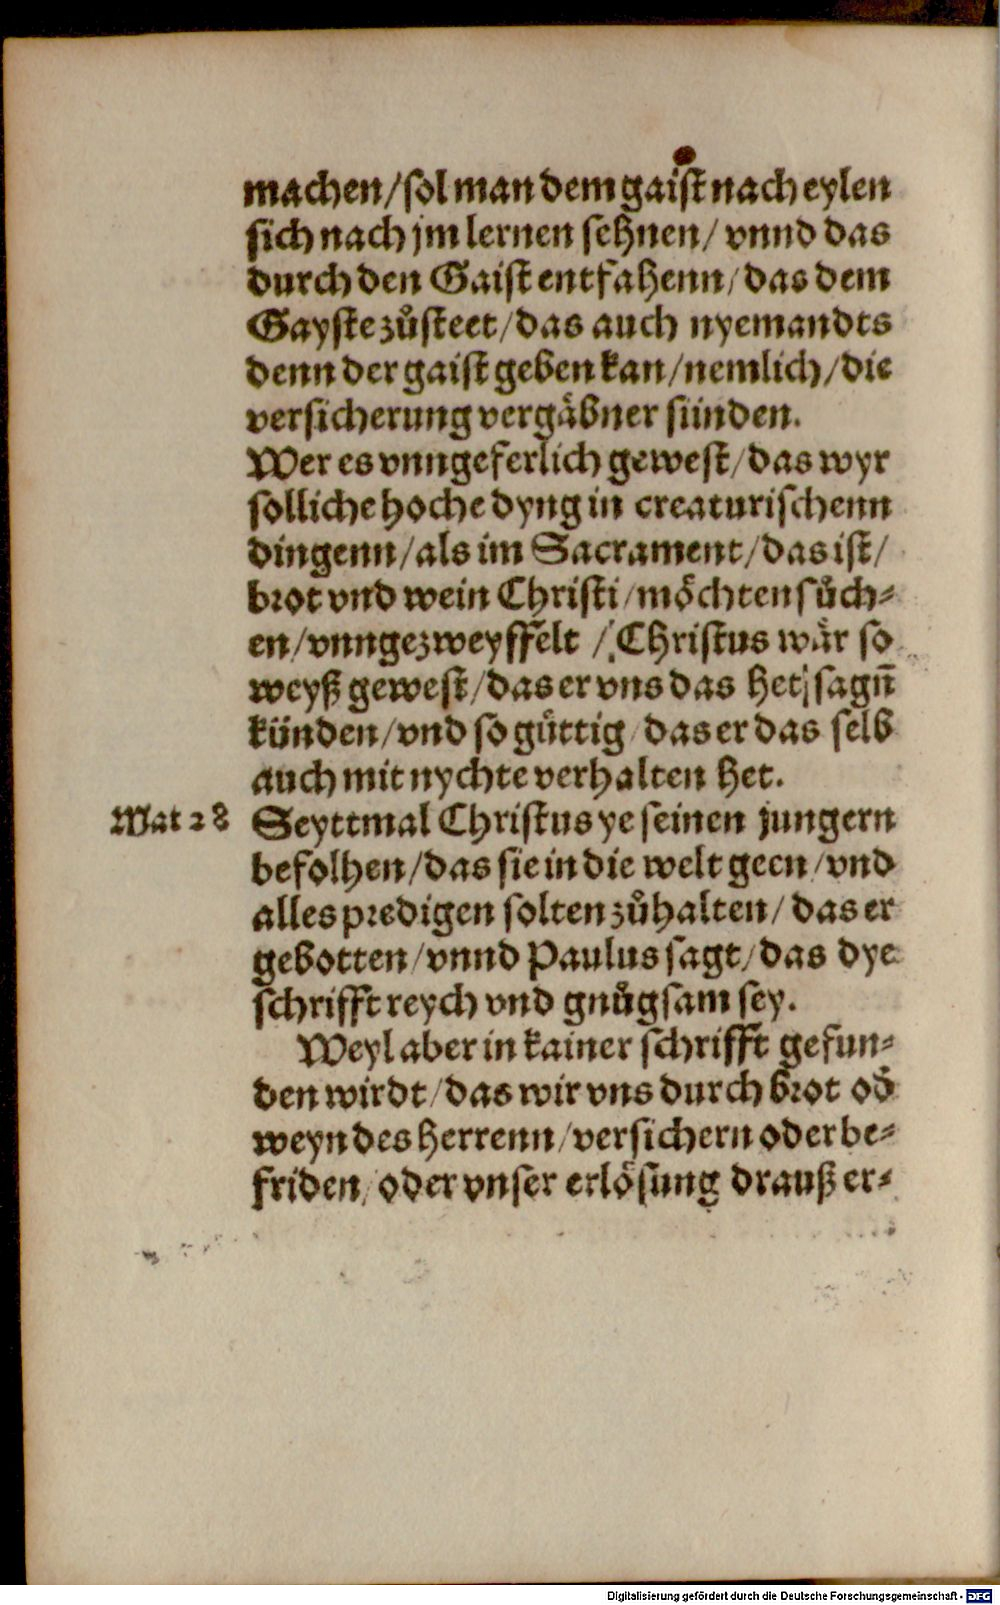 machen/sol man dem gaist nach eylen
sich nach jm lernen sehnen/ vnnd das
durch den Gaist entfahenn/das dem
Gayste zůsteet/das auch nyemandts
denn der gaist geben kan/nemlich/die
versicherung vergäbner sünden.
Wer es vnngeferlich gewest/das wyr
solliche hoche dyng in creaturischenn
dingenn/als im Sacrament/das ist/
brot vnd wein Christi/möchten sůch⸗
en/vnngezweyffelt /Christus wär so
weyß gewest/das er vns das het sagñ
künden/vnd so gůttig/das er das selb
auch mit nychte verhalten het.
Mat 28 Seyttmal Christus ye seinen jungern
befolhen/das sie in die welt geen/vnd
alles predigen solten zůhalten/das er
gebotten/vnnd Paulus sagt/das dye
schrifft reych vnd gnůgsam sey.
Weyl aber in kainer schrifft gefun⸗
den wirdt/das wir vns durch brot od̓
weyn des Herrenn/versichern oder be⸗
friden/oder vnser erlösung drauß er⸗
Digitalisierung gefördert durch die Deutsche Forschungsgemeinschaft - DFG